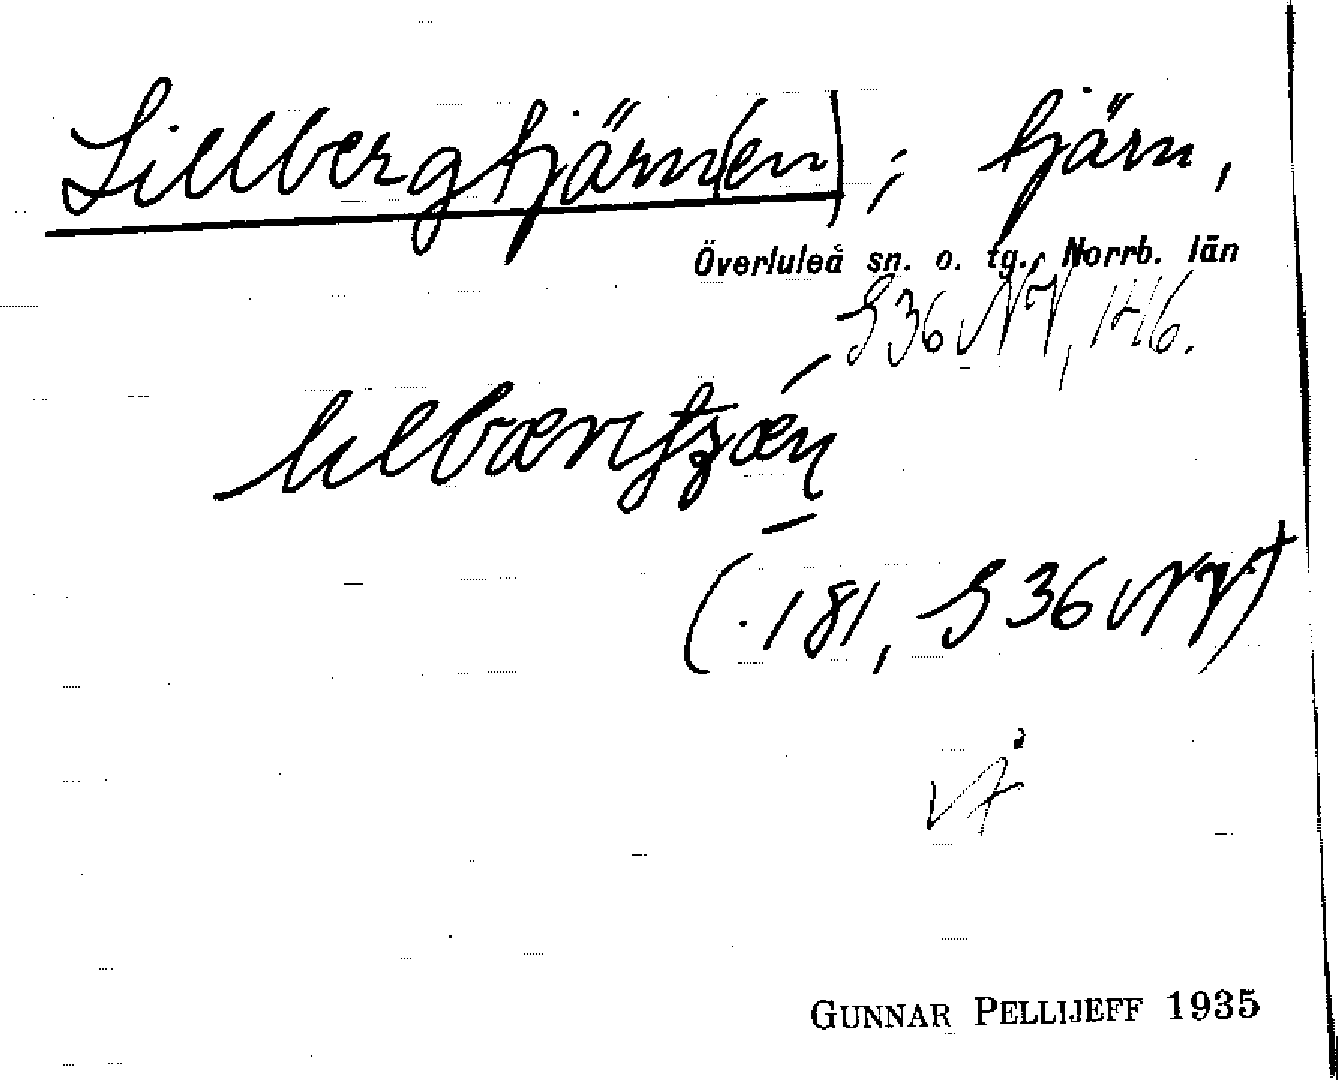 Lillbergtjärn(en); tjärn,
Överluleå sn. o. tg., Norrb. län
S36NV, 146.
(·181, S36NV)
GUNNAR PELLIJEFF 1935